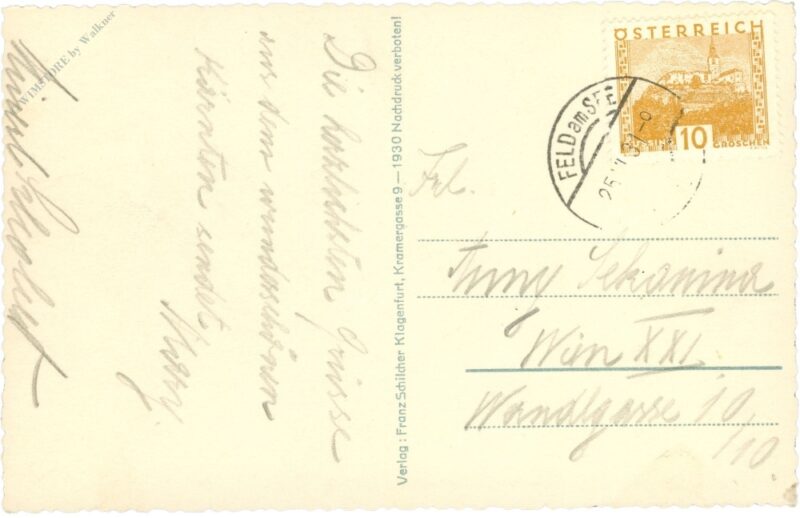 Die herzlichsten Grüsse
aus dem wunderschönen
Kärnten sendet
Mary.
WIMSTORE by Walkner
Verlag: Franz Schilcher Klagenfurt, Kramergasse 9 – 1930 Nachdruck verboten!
ÖSTERREICH
10
GROSCHEN
FELD am SEE
Frl.
Sekanina
Wien XXI.
Wandlgasse 10
/10